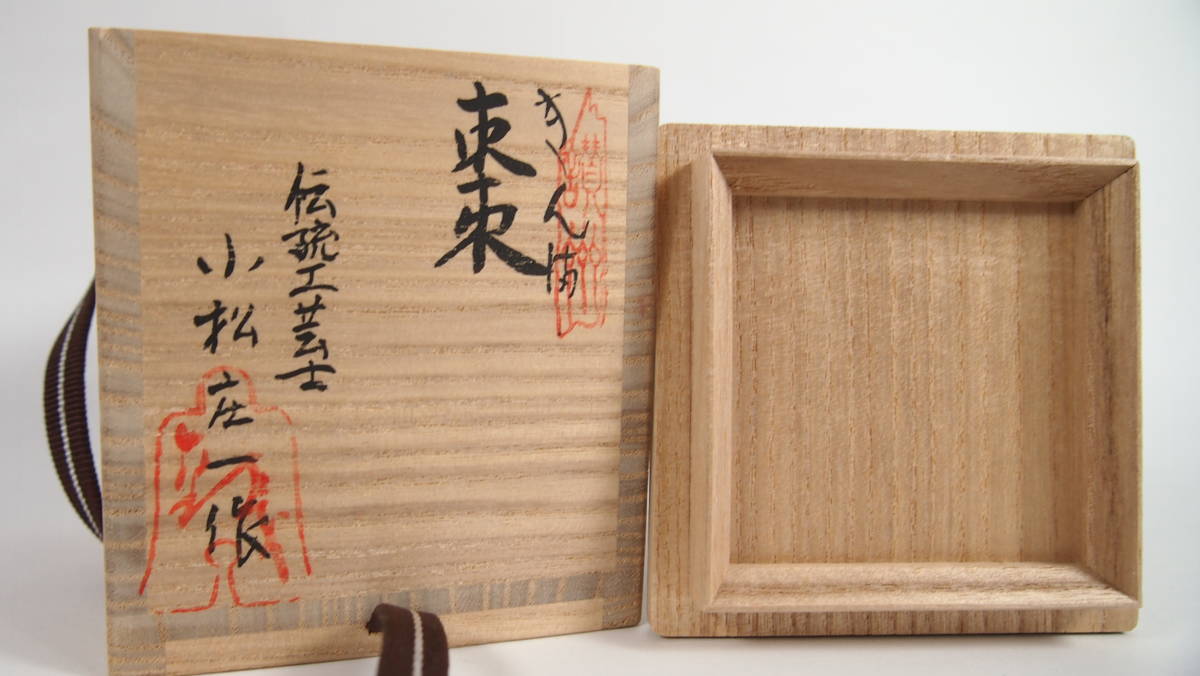 きんま
棗
伝統工芸士
小松庄一作